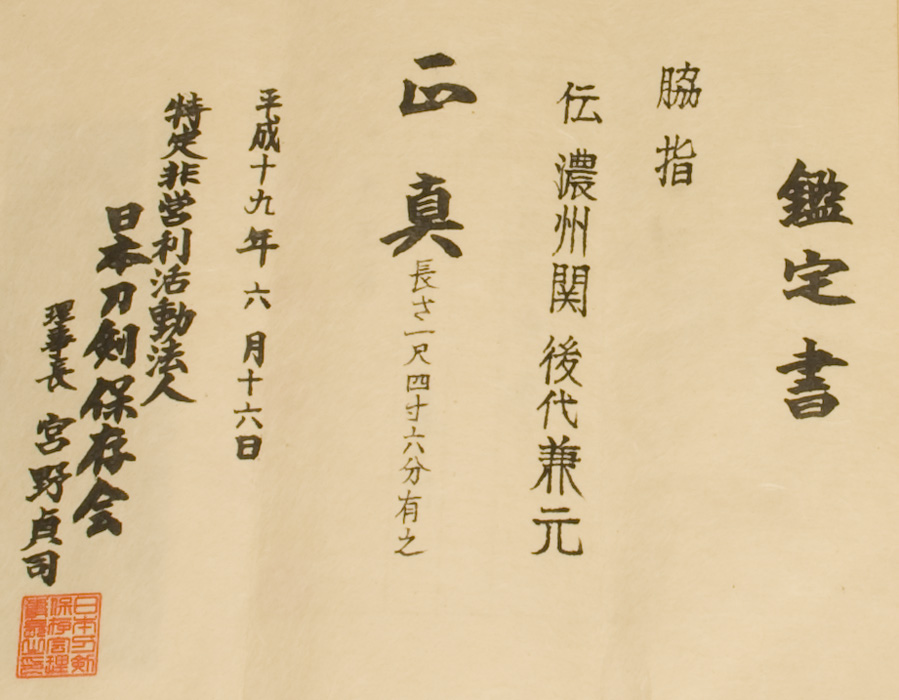 鑑定書
脇指
伝 濃州関 後代兼元
正真 長さ一尺四寸六分有之
平成十九年六月十六日
特定非営利活動法人
日本刀剣保存会
理事長 宮野貞司
日本刀剣
保存会理
事長之印